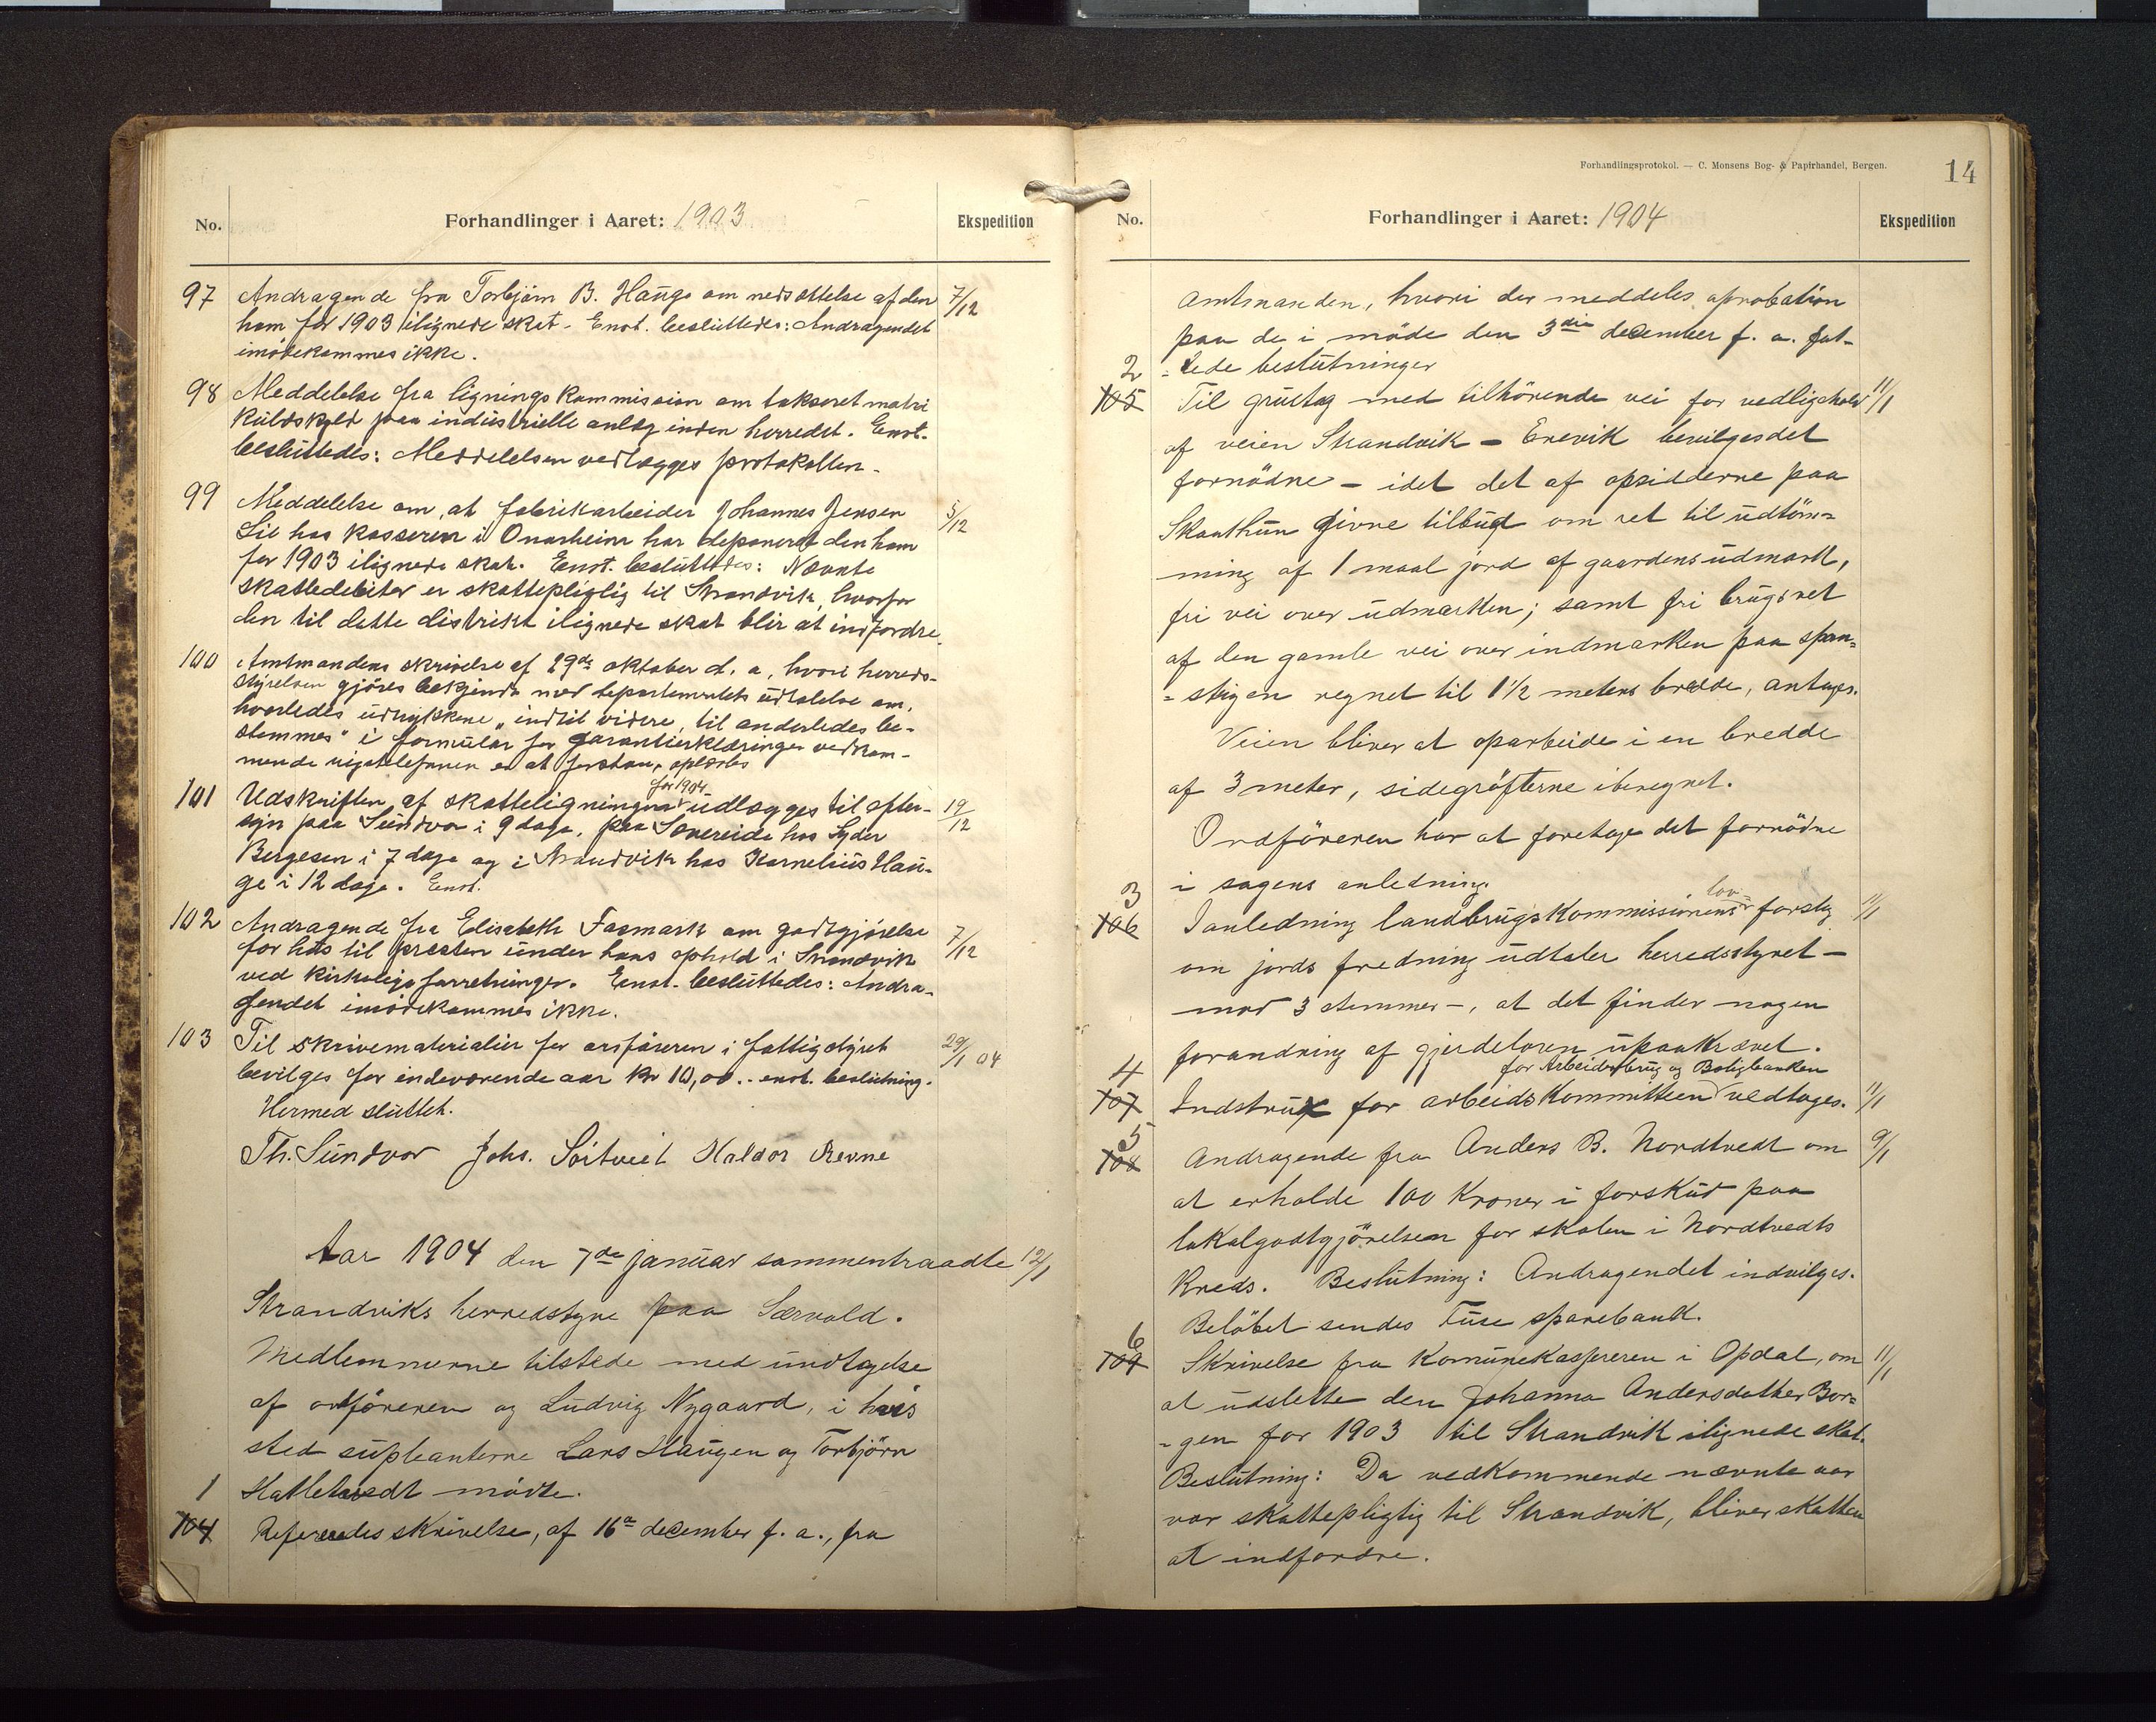 No.
Forhandlinger i Aaret: 1903
Ekspedition
97 Andragende fra Torbjørn B. Hauge om nedsættelse af den 7/12
ham for 1903 ilignede skat. Enst. besluttedes: Andragendet
imødekommes ikke.
98 Meddelelse fra ligningskommission om takseret matri
kulskyld paa industrielle anlæg inden herredet. Enst.
besluttedes: Meddelelsen vedlægges protokollen.
99 Meddelelse om, at fabrikarbeider Johannes Jensen 5/12
Lie hos kassereren i Onarheim har deponeret den ham
for 1903 ilignede skat. Enst. besluttedes: Nævnte
skattedebitor er skattepligtig til Strandvik, hvorfor
den til dette distrikt ilignede skat blir at indfordre.
100 Amtmandens skrivelse af 29de oktober d. a, hvori herreds-
styrelsen gjøres bekjendt med departementets udtalelse om,
hvorledes udtrykkene „indtil videre, til anderledes be-
stemmes" i formular for garantierklæringer vedkom-
mende rigstelefonen er at forstaa, oplæstes
101 Udskriften af skatteligningen for 1904 udlægges til efter- 19/12
syn paa Sundvor i 9 dage, paa Sævereide hos Syder
Bergesen i 7 dage og i Strandvik hos Kornelius Hau-
ge i 12 dage. Enst.
102 Andragende fra Elisabeth Fagmark om godtgjørelse 7/12
for hus til presten under hans ophold i Strandvik
ved kirkelige forretninger. Enst. besluttedes: Andra-
gendet imødekommes ikke.
103 Til skrivematerialier for ordføreren i fattigstyret 29/1 04
bevilges for indeværende aar Kr 10,00.- enst. beslutning.
Hermed sluttet.
Th. Sundvor Johs. Søitveit Haldor Revne
Aar 1904 den 7de januar sammentraadte 12/1
Strandviks herredstyre paa Særvold.
Medlemmerne tilstede med undtagelse
af ordföreren og Ludvig Nygaard, i hvis
sted supleanterne Lars Haugen og Torbjörn
1 Hatletvedt mødte.
104 Refereredes skrivelse, af 16de december f. a., fra
Forhandlingsprotokol. — C. Monsens Bog- & Papirhandel, Bergen.
14
No.
Forhandlinger i Aaret: 1904
Ekspedition
amtmanden, hvori der meddeles aprobation
paa de i möde den 3die december f. a. fat-
2 =tede beslutninger
105 Til grustag med tilhörende vei for vedligehold 11/1
af veien Strandvik - Enevik bevilges det
fornödne - idet det af opsidderne paa
Skaathun givne tilbud om ret til udtöm=
ning af 1 maal jord af gaardens udmark,
fri vei over udmarken; samt fri brugsret
af den gamle vei over indmarken paa span=
=stigen regnet til 1 1/2 meters bredde, antages.
Veien bliver at oparbeide i en bredde
af 3 meter, sidegröfterne iberegnet.
Ordföreren har at foretage det fornödne
3 i sagens anledning.
106 I anledning landbrugskommissionens lov-forslag 11/1
om jords fredning udtaler herredsstyret -
mod 3 stemmer -, at det finder nogen
forandring af gjerdeloven upaakrævet.
4 for Arbeiderbrug og Boligbanken
107 Instrux for arbeidskommitteen vedtages. 11/1
5
108 Andragende fra Anders B. Nordtvedt om 9/1
at erholde 100 Kroner i forskud paa
lokalgodtgjörelsen for skolen i Nordtvedts
Kreds. Beslutning: Andragendet indvilges.
Belöbet sendes Fuse sparebank.
6
109 Skrivelse fra Komunekassereren i Opdal, om 11/1
at udslette den Johanna Andersdatter Bor=
=gen for 1903 til Strandvik ilignede skat.
Beslutning: Da vedkommende nævnte aar
var skattepligtig til Strandvik, bliver skatten
at indfordre.